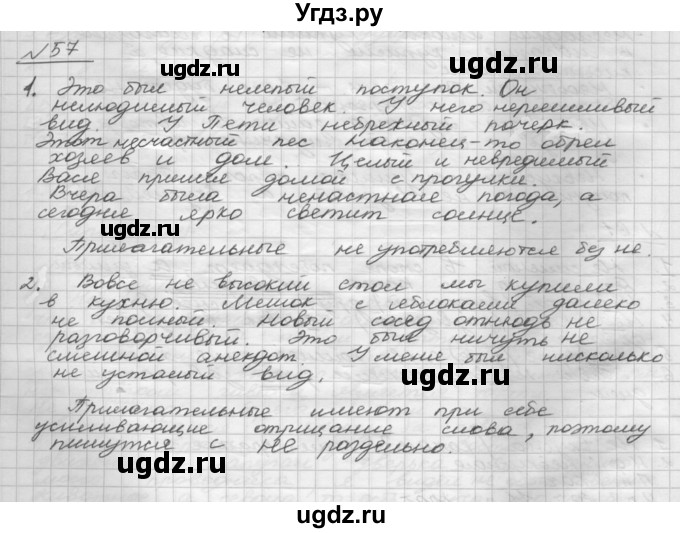 Угдз.ру
№57
1. Это был нелепый поступок. Он
нелюдимый человек. У него нерешливый
вид. У Пети небрежный почерк.
Этот несчастный пес наконец-то обрел
хозяев и дом. Целый и невредимый
Вася пришел домой с прогулки.
Вчера была ненастная погода, а
сегодня ярко светит солнце.
Прилагательные не употребляются без не.
2. Вовсе не высокий стол мы купили
в кухню. Мешок с яблоками далеко
не полный. Новый сосед отнюдь не
разговорчивый. Это был ничуть не
смешной анекдот. У меня был нисколько
не усталый вид.
Прилагательные имеют при себе
усиливающие отрицание слова, поэтому
пишутся с не раздельно.
ugdz.ru
ugdz.ru
ugdz.ru
ugdz.ru
ugdz.ru
ugdz.ru
ugdz.ru
ugdz.ru
ugdz.ru
ugdz.ru
ugdz.ru
ugdz.ru
ugdz.ru